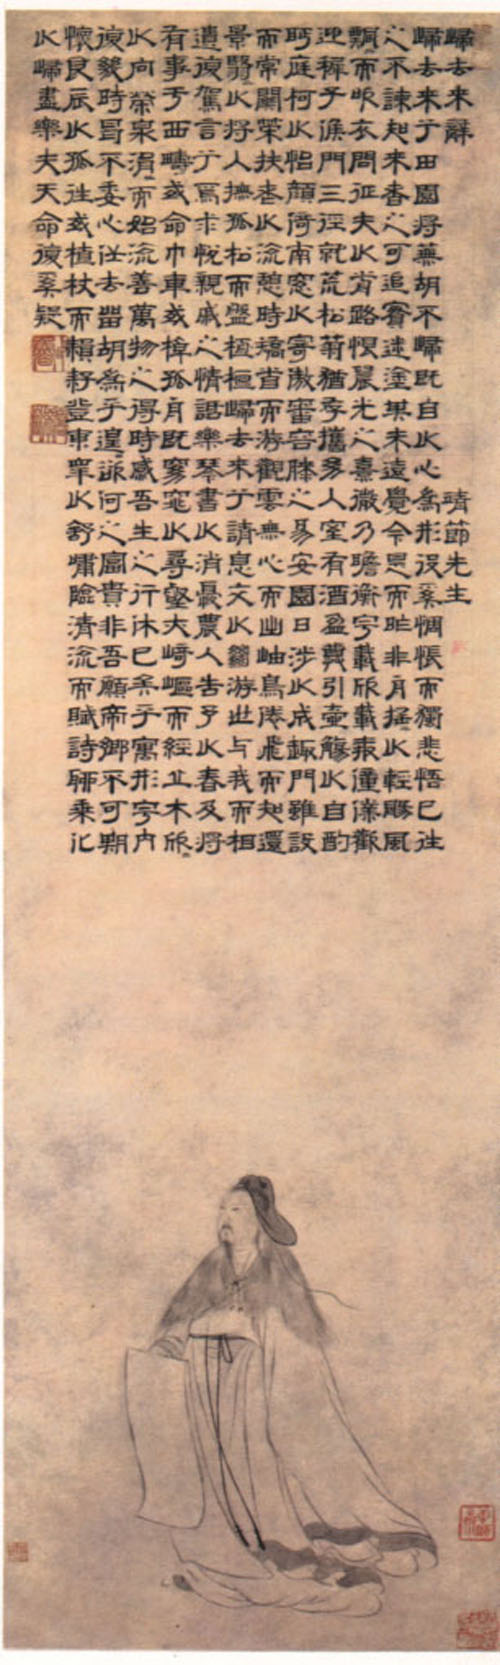 歸去來辭 靖節先生
歸去來兮田園將蕪胡不歸既自以心為形役奚惆悵而獨悲悟已往
之不諫知來者之可追實迷塗其未遠覺今是而昨非舟搖〻以輕颺風
飄〻而吹衣問征夫以前路恨晨光之熹微乃瞻衡宇載欣載奔僮僕歡
迎稚子候門三徑就荒松菊猶存攜幼入室有酒盈樽引壺觴以自酌
眄庭柯以怡顏倚南窓以寄傲審容膝之易安園日涉以成趣門雖設
而常關策扶老以流憩時矯首而游觀雲無心而出岫鳥倦飛而知還
景翳〻以將入撫孤松而盤桓歸去來兮請息交以絕游世與我而相
遺復駕言兮焉求悅親戚之情話樂琴書以消憂農人告予以春及將
有事于西疇或命巾車或棹孤舟既窈窕以尋壑亦崎嶇而經丘木欣〻
以向榮泉涓〻而始流善萬物之得時感吾生之行休已矣乎寓形宇內
復幾時曷不委心任去留胡為乎遑〻欲何之富貴非吾願帝鄉不可期
懷良辰以孤往或植杖而耘耔登東皋以舒嘯臨清流而賦詩聊乘化
以歸盡樂夫天命復奚疑